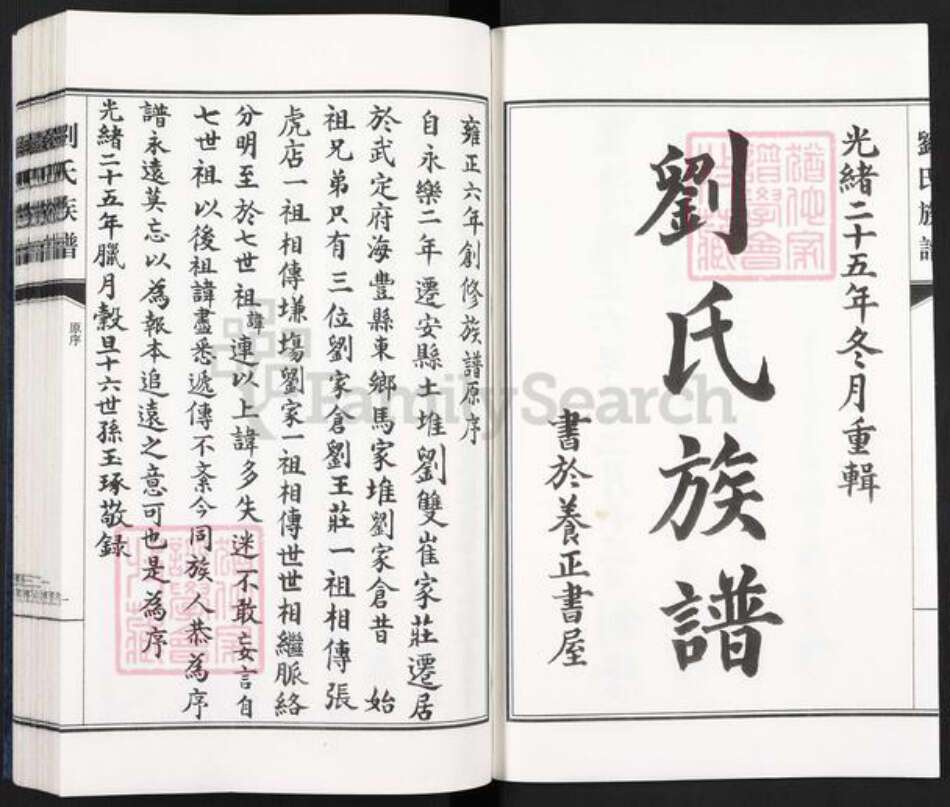 光緒二十五年冬月重輯
劉氏族譜
書於養正書屋
雍正六年創修族譜原序
自永樂二年遷安縣土堆劉雙崔家莊遷居
於武定府海豐縣東鄉馬家堆劉家倉昔始
祖兄弟只有三位劉家倉劉王莊一祖相傳張
虎店一祖相傳壔劉家一祖相傳世世相繼脈絡
分明至於七世祖諱連以上諱多失迷不敢妄言自
七世祖以後祖諱盡悉遞傳不紊今同族人恭為序
譜永遠莫忘以為報本追遠之意可也是為序
光緒二十五年臘月穀旦十六世孫玉琢敬録
劉氏族譜
原序
劉氏族譜
FamilySearch